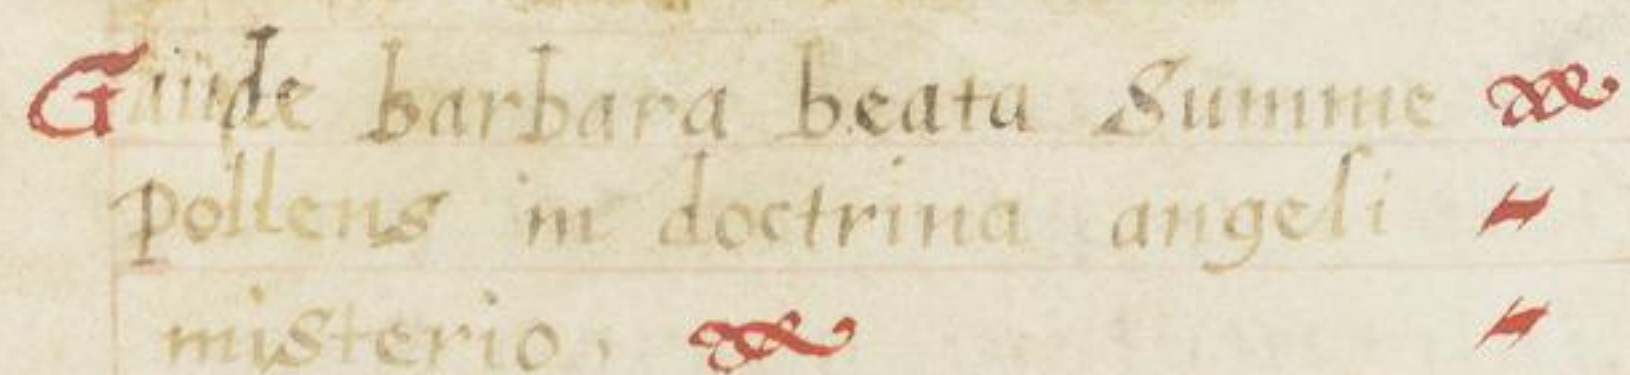 Gaude barbara beata Summe
pollens in doctrina angeli
misterio,